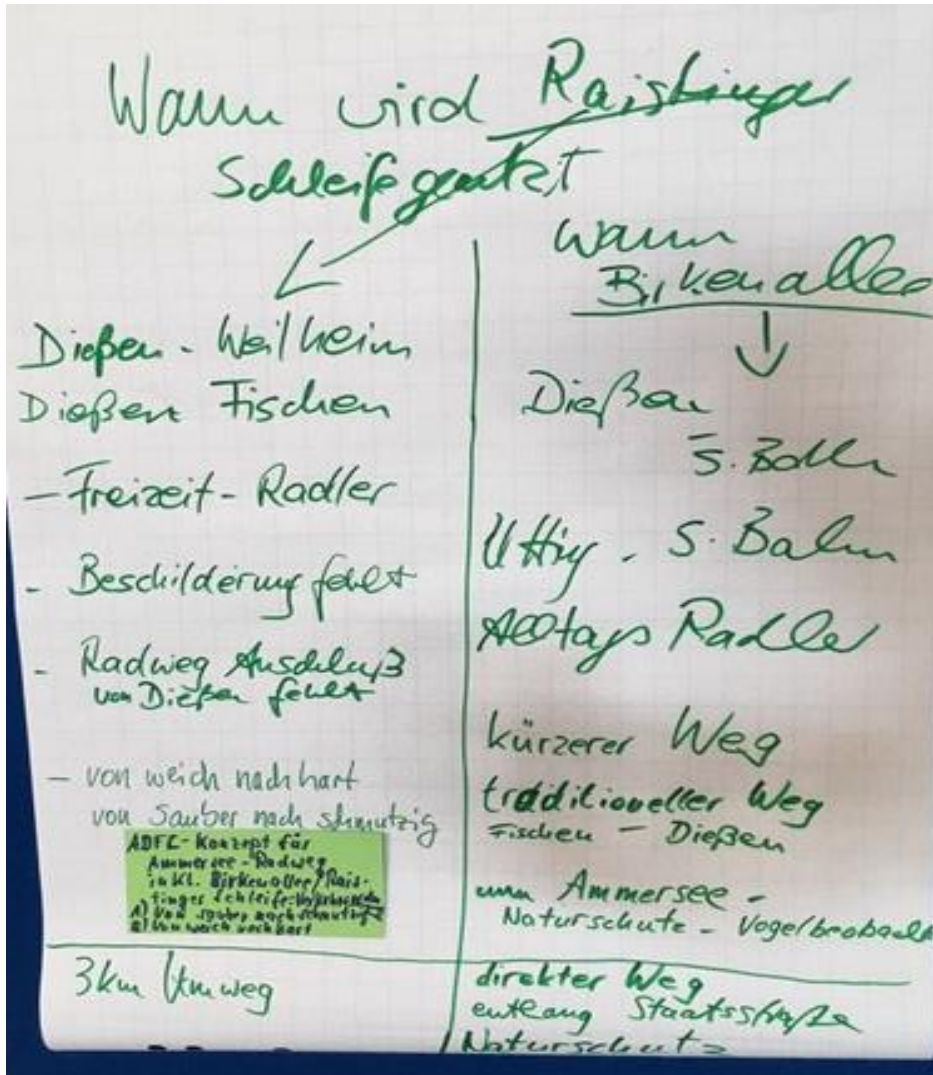 Wann wird Raistinger
Schleife genutzt
Dießen - Weilheim
Dießen Fischen
- Freizeit - Radler
- Beschilderung fehlt
- Radweg Anschluß
von Dießen fehlt
- von weich nach hart
von Sauber nach schmutzig
ADFC-Konzept für
Ammersee-Radweg
inkl. Birkenallee/Rais-
tinger Schleife:
1) Von sauber nach schmutzig
2) Von weich nach hart
3km Umweg
Wann
Birkenallee
Dießen
- S. Bahn
Utting - S. Bahn
Alltags Radler
kürzerer Weg
traditioneller Weg
Fischen - Dießen
um Ammersee -
Naturschutz - Vogelbeobach
direkter Weg
entlang Staatsstraße
Naturschutz